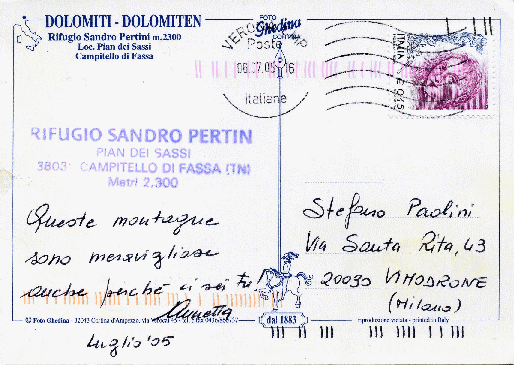 DOLOMITI - DOLOMITEN
Rifugio Sandro Pertini m.2300
Loc. Pian dei Sassi
Campitello di Fassa
FOTO
Ghedina
CORTINA
VERONA
Poste
06.07.05-16
italiane
RIFUGIO SANDRO PERTIN
PIAN DEI SASSI
3803 CAMPITELLO DI FASSA (TN)
Metri 2.300
Queste montagne
sono meravigliose
anche perché ci sei tu!
Annetta
Luglio '05
Stefano Paolini
Via Santa Rita, 43
20090 VIMODRONE
(Milano)
© Foto Ghedina - 32043 Cortina d'Ampezzo, via
dal 1883
riproduzione vietata - printed in Italy